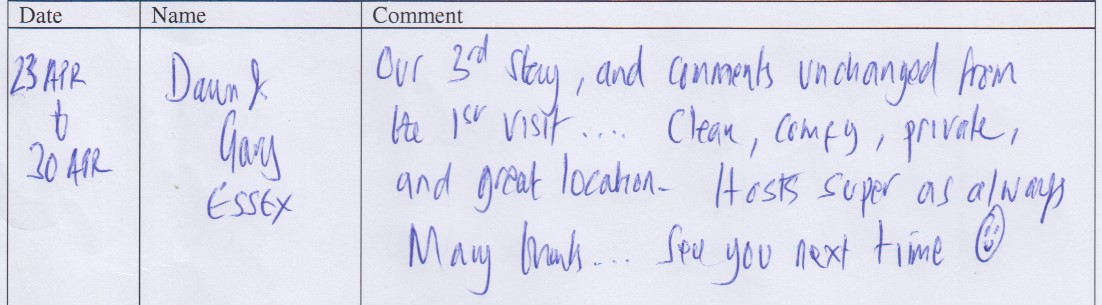 Date Name Comment
23 APR
to
30 APR
Dawn &
Gary
ESSEX
Our 3rd stay, and comments unchanged from
the 1st visit.... Clean, comfy, private,
and great location- Hosts super as always
Many thanks... See you next time ☺